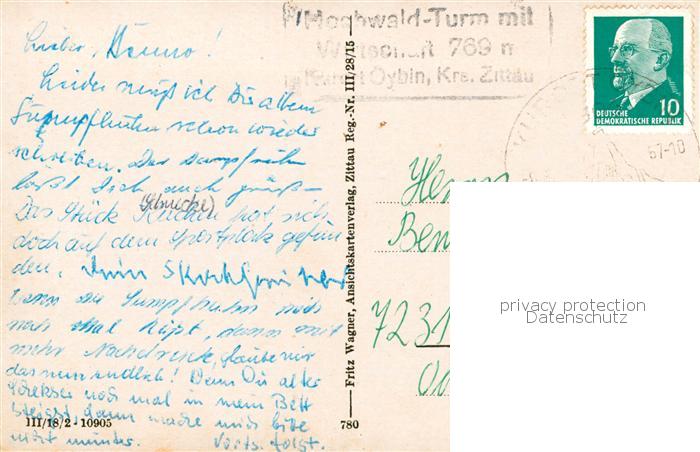 Hochwald-Turm mit
Wirtschaft 769 m
Kurort Oybin, Krs. Zittau
10
DEUTSCHE
DEMOKRATISCHE REPUBLIK
67-10
Lieber, Benno!
Leider muß ich Dir altem
Sumpfhuhn schon wieder
schreiben. Das Sumpfhuhn
läßt Dich auch grüßen
(Schnucke)
Das Stück Kuchen hat sich
doch auf dem Sportplatz gefun
den.
Wenn Du Sumpfhuhn mich
noch mal, dann mit
mehr Nachdruck, glaube mir
das nun endlich! Wenn Du alter
noch mal in mein Bett
steigst, dann mache mich bitte
nicht munter. Forts. folgt.
III/18/2 - 10905
780
Fritz Wagner, Ansichtskartenverlag, Zittau Reg.-Nr. III/28/15
Herrn
Ben
7231
privacy protection
Datenschutz